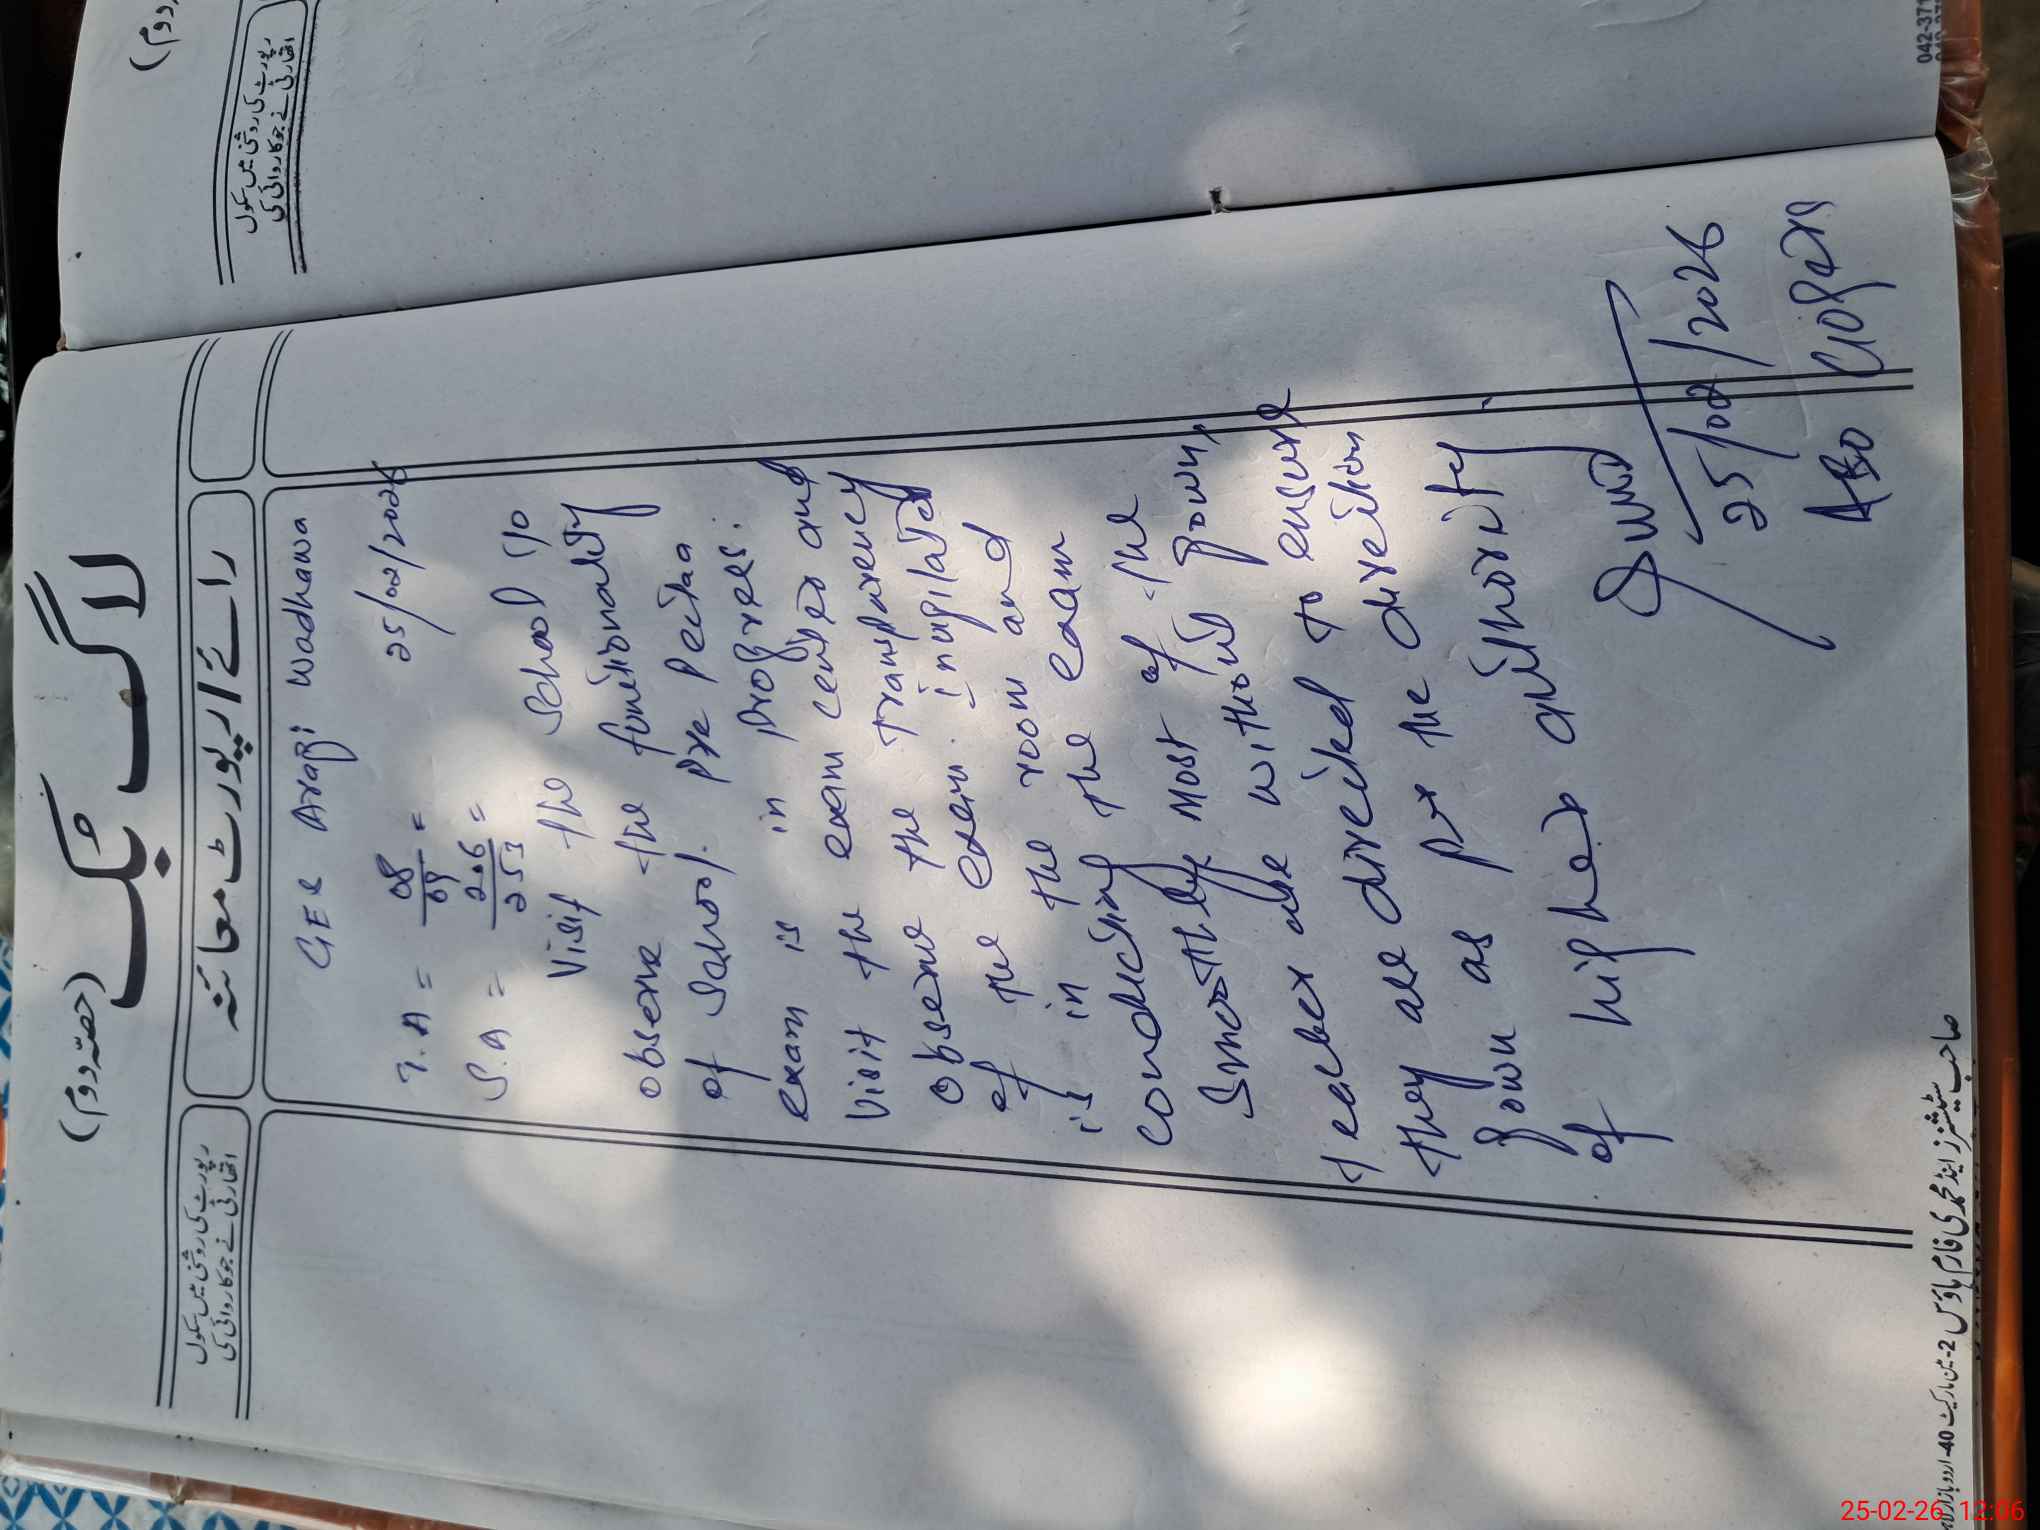 (حصّہ دوم)
لاگ بُک
رپورٹ کی روشنی میں سکول
اتھارٹی نے جو کاروائی کی
رائے / رپورٹ معائنہ
GES Arazi Wadhawa
25/02/2026
T.A = 08/09 =
S.A = 206/253 =
Visit the School t/o
observe the functionality
of School. Pre Pecta
exam is in progress.
Visit the exam center and
observe the transparency
of the exam. invigilated
in the room and
is in the exam
conducting Most of the
Smoothly without gown,
teacher are directed to ensure
they are per the direction
gown as authority
of higher
25/02/2026
AEO
صاحب سٹیشنرز اینڈ محمدی فارم ہاؤس 2-مین مارکیٹ 40-اردو بازار
دوم)
رپورٹ کی روشنی میں سکول
اتھارٹی نے جو کاروائی کی
042-371
25-02-26 12:06